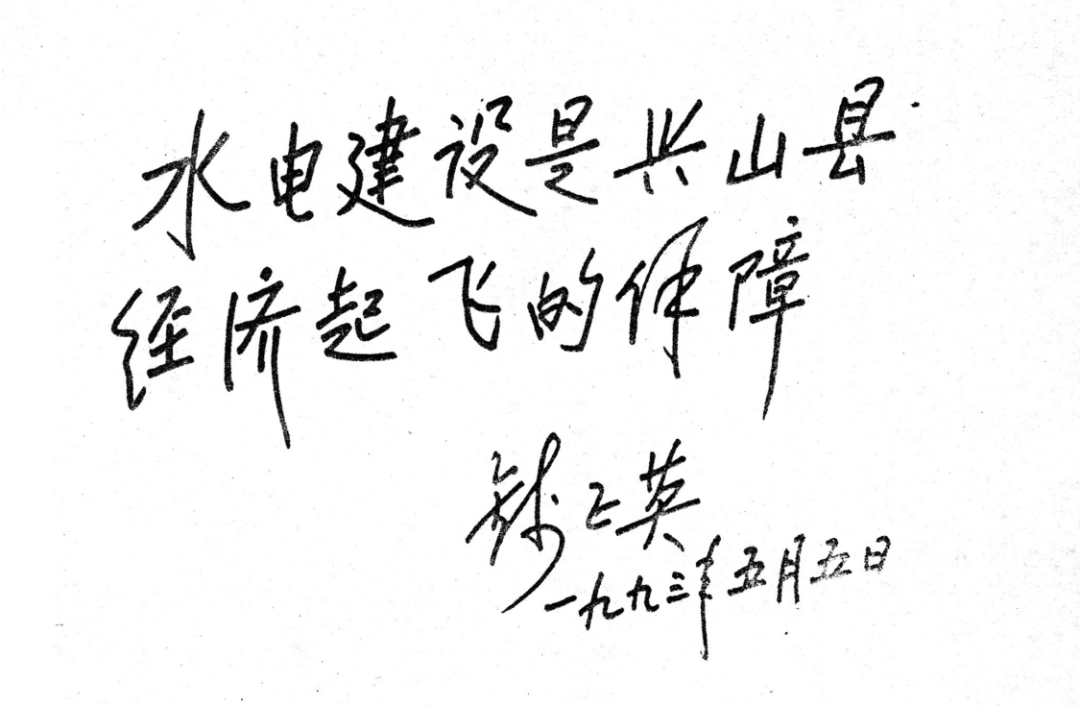 水电建设是兴山县
经济起飞的保障
钱正英
一九九三年五月五日